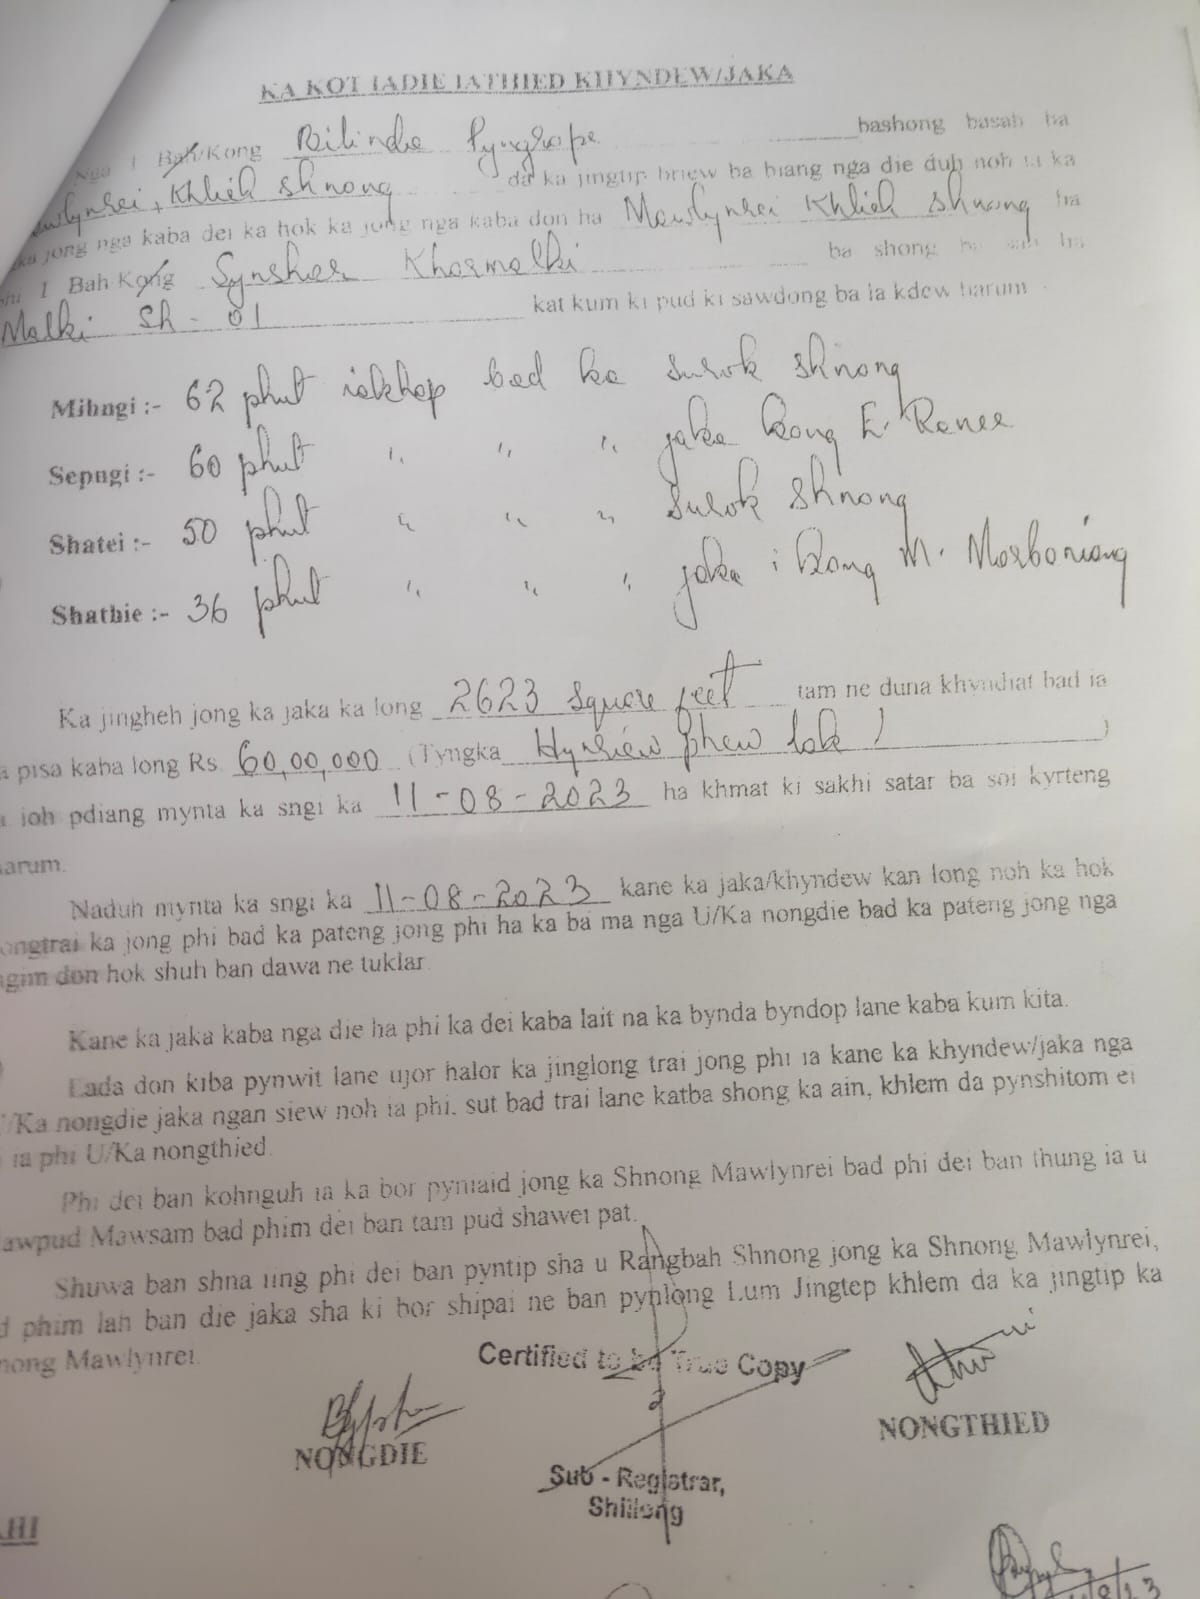 KA KOT IADIE IATHIED KHYNDEW/JAKA
Nga I Bah/Kong Bilinda Pyngrope bashong basah ha
Mawlynrei, Khlieh Shnong da ka jingtip briew ba biang nga die duh noh ia ka
jong nga kaba dei ka hok ka jong nga kaba don ha Mawlynrei Khlieh Shnong ha
phi I Bah Kong Synshar Kharmalki ba shong ba sah ha
Malki Sh - 01 kat kum ki pud ki sawdong ba la kdew harum
Mihngi :- 62 phut iakhap bad ka surok shnong
Sepngi :- 60 phut " " " jaka Kong E. Ranee
Shatei :- 50 phut " " " Surok Shnong
Shathie :- 36 phut " " " jaka i Kong M. Marboniang
Ka jingheh jong ka jaka ka long 2623 Square feet tam ne duna khyndiat bad ia
pisa kaba long Rs. 60,00,000 (Tyngka Hynriew phew lak)
ioh pdiang mynta ka sngi ka 11-08-2023 ha khmat ki sakhi satar ba soi kyrteng
harum.
Naduh mynta ka sngi ka 11-08-2023 kane ka jaka/khyndew kan long noh ka hok
longtrai ka jong phi bad ka pateng jong phi ha ka ba ma nga U/Ka nongdie bad ka pateng jong nga
ngim don hok shuh ban dawa ne tuklar.
Kane ka jaka kaba nga die ha phi ka dei kaba lait na ka bynda byndop lane kaba kum kita.
Lada don kiba pynwit lane ujor halor ka jinglong trai jong phi ia kane ka khyndew/jaka nga
U/Ka nongdie jaka ngan siew noh ia phi. sut bad trai lane katba shong ka ain, khlem da pynshitom ei
ia phi U/Ka nongthied.
Phi dei ban kohnguh ia ka bor pyniaid jong ka Shnong Mawlynrei bad phi dei ban thung ia u
Mawpud Mawsam bad phim dei ban tam pud shawei pat.
Shuwa ban shna iing phi dei ban pyntip sha u Rangbah Shnong jong ka Shnong Mawlynrei,
phim lah ban die jaka sha ki bor shipai ne ban pynlong Lum Jingtep khlem da ka jingtip ka
Shnong Mawlynrei.
Certified to be True Copy
NONGDIE
NONGTHIED
Sub - Registrar,
Shillong